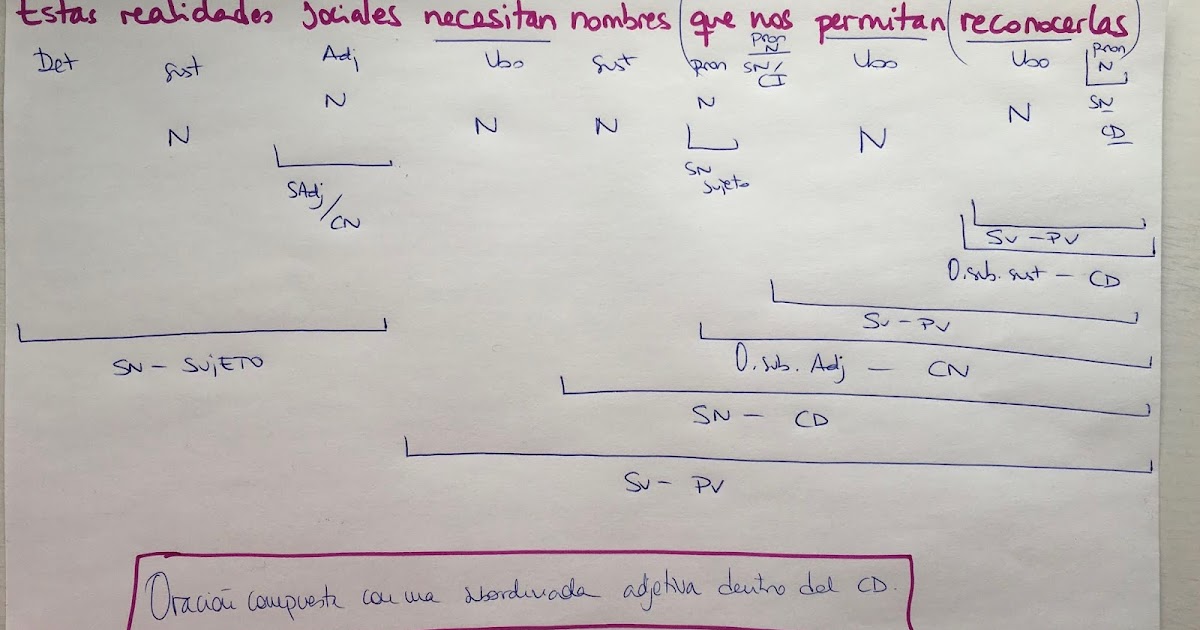 Estas realidades sociales necesitan nombres (que nos permitan (reconocerlas))
Det Sust Adj Vbo Sust pron pron Vbo Vbo pron
N SN/CI N
N N N N N SN
N N CD
SN
Sujeto
SAdj/CN
SV - PV
O. sub. sust - CD
SV - PV
SN - SUJETO O. sub. Adj - CN
SN - CD
SV - PV
Oración compuesta con una subordinada adjetiva dentro del CD.